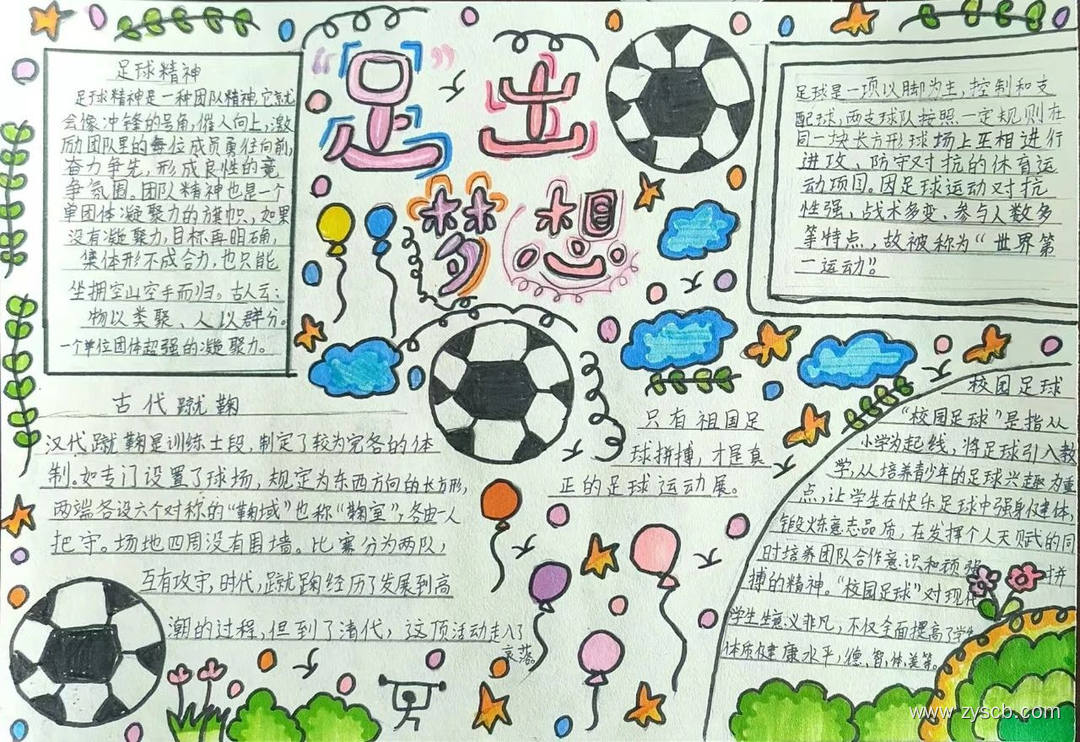 足出
梦想
足球精神
足球精神是一种团队精神,它就
会像冲锋的号角,催人向上,激
励团队里的每位成员勇往向前,
奋力争先,形成良性的竞
争氛围。团队精神也是一个
单团体凝聚力的旗帜,如果
没有凝聚力,目标再明确,
集体形不成合力,也只能
坐拥空山空手而归。古人云:
物以类聚、人以群分。
一个单位团体超强的凝聚力。
足球是一项以脚为主,控制和支
配球,两支球队按照一定规则在
同一块长方形球场上互相进行
进攻、防守对抗的体育运
动项目。因足球运动对抗
性强、战术多变、参与人数多
等特点,故被称为“世界第
一运动”。
古代蹴鞠
汉代蹴鞠是训练士段,制定了较为完各的体
制。如专门设置了球场,规定为东西方向的长方形,
两端各设六个对称的“鞠域”也称“鞠室”,各由一人
把守。场地四周没有围墙。比赛分为两队,
互有攻守,时代,蹴踘经历了发展到高
潮的过程,但到了清代,这项活动走入了
哀落。
只有祖国足
球拼搏,才是真
正的足球运动展。
校园足球
“校园足球”是指从
小学为起线,将足球引入教
学,从培养青少年的足球兴趣为重
点,让学生在快乐足球中强身健体,
锻炼意志品质,在发挥个人天赋的同
时培养团队合作意识和顽强拼
搏的精神。“校园足球”对现
学生生意义非凡,不仅全面提高了学
体质健康水平,德、智、体、美等。
www.zyscb.com